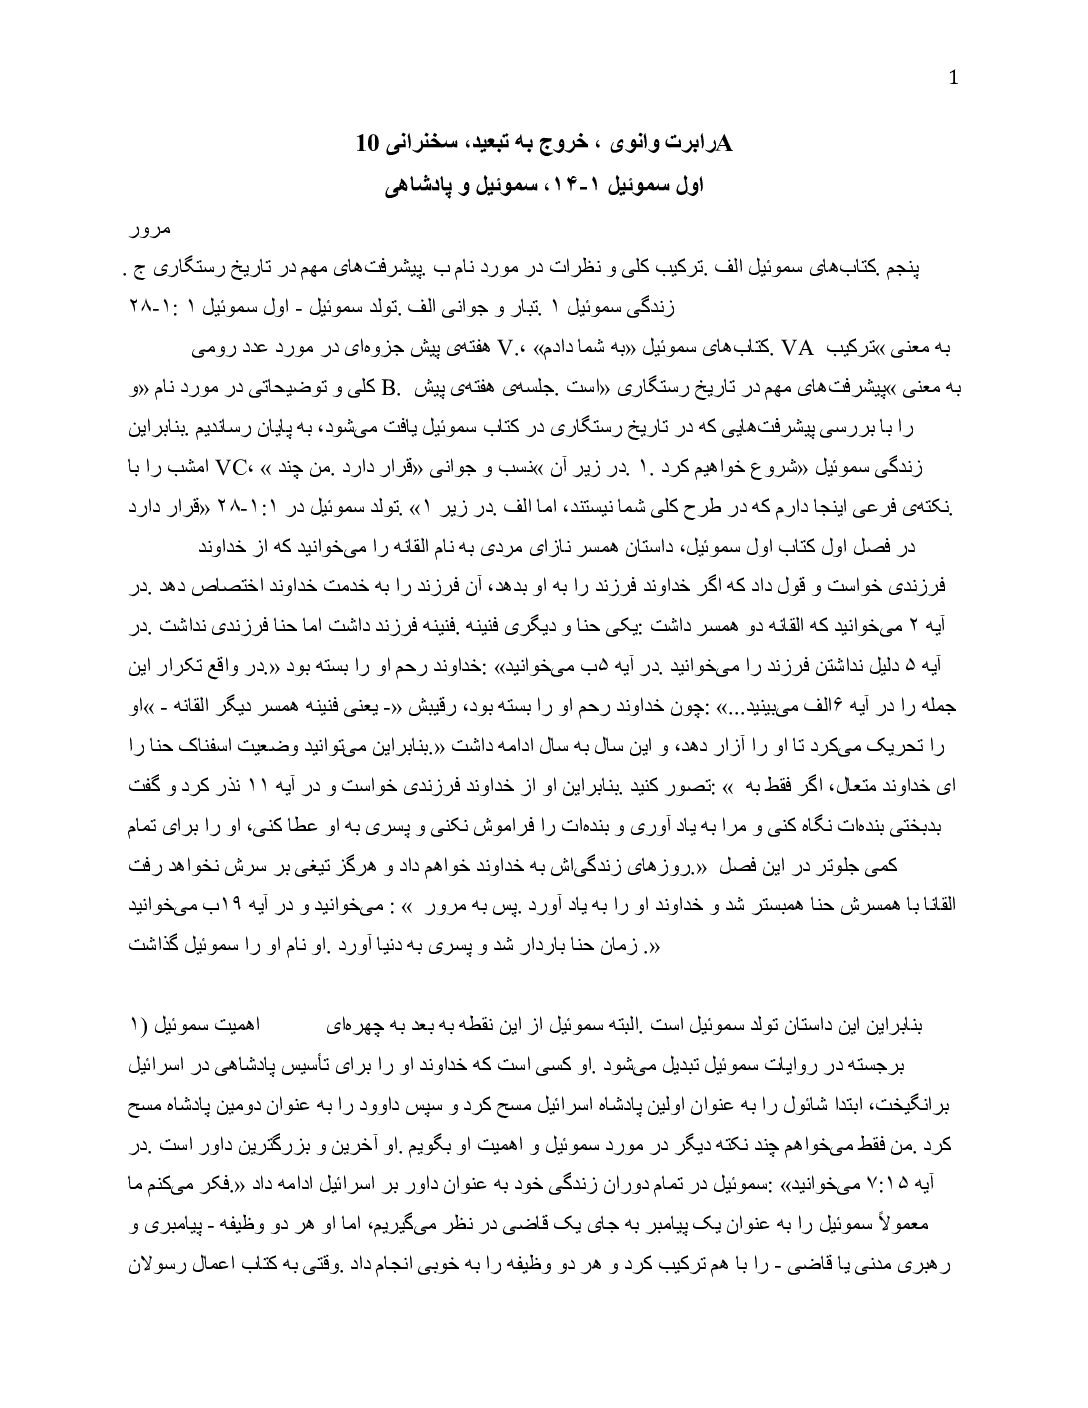 1
رابرت وانوی ، خروج به تبعید، سخنرانی 10A
اول سموئیل ۱-۱۴، سموئیل و پادشاهی
مرور
پنجم .کتاب‌های سموئیل الف .ترکیب کلی و نظرات در مورد نام ب .پیشرفت‌های مهم در تاریخ رستگاری ج .
زندگی سموئیل ۱ .تبار و جوانی الف .تولد سموئیل - اول سموئیل ۱ :۱-۲۸
هفته‌ی پیش جزوه‌ای در مورد عدد رومی V.، «کتاب‌های سموئیل «به شما دادم. VA به معنی «ترکیب
کلی و توضیحاتی در مورد نام «و B. به معنی «پیشرفت‌های مهم در تاریخ رستگاری «است .جلسه‌ی هفته‌ی پیش
را با بررسی پیشرفت‌هایی که در تاریخ رستگاری در کتاب سموئیل یافت می‌شود، به پایان رساندیم .بنابراین
امشب را با VC، « زندگی سموئیل «شروع خواهیم کرد .۱ .در زیر آن «نسب و جوانی «قرار دارد .من چند
نکته‌ی فرعی اینجا دارم که در طرح کلی شما نیستند، اما الف .در زیر ۱» .تولد سموئیل در ۱:۱-۲۸ «قرار دارد.
در فصل اول کتاب اول سموئیل، داستان همسر نازای مردی به نام القانه را می‌خوانید که از خداوند
فرزندی خواست و قول داد که اگر خداوند فرزند را به او بدهد، آن فرزند را به خدمت خداوند اختصاص دهد .در
آیه ۲ می‌خوانید که القانه دو همسر داشت :یکی حنا و دیگری فنینه .فنینه فرزند داشت اما حنا فرزندی نداشت .در
آیه ۵ دلیل نداشتن فرزند را می‌خوانید .در آیه ۵ب می‌خوانید» :خداوند رحم او را بسته بود «.در واقع تکرار این
جمله را در آیه ۶الف می‌بینید...» :چون خداوند رحم او را بسته بود، رقیبش «- یعنی فنینه همسر دیگر القانه - »او
را تحریک می‌کرد تا او را آزار دهد، و این سال به سال ادامه داشت «.بنابراین می‌توانید وضعیت اسفناک حنا را
تصور کنید .بنابراین او از خداوند فرزندی خواست و در آیه ۱۱ نذر کرد و گفت :« ای خداوند متعال، اگر فقط به
بدبختی بنده‌ات نگاه کنی و مرا به یاد آوری و بنده‌ات را فراموش نکنی و پسری به او عطا کنی، او را برای تمام
روزهای زندگی‌اش به خداوند خواهم داد و هرگز تیغی بر سرش نخواهد رفت.» کمی جلوتر در این فصل
می‌خوانید و در آیه ۱۹ب می‌خوانید : « القانا با همسرش حنا همبستر شد و خداوند او را به یاد آورد .پس به مرور
زمان حنا باردار شد و پسری به دنیا آورد .او نام او را سموئیل گذاشت .»
۱) اهمیت سموئیل بنابراین این داستان تولد سموئیل است .البته سموئیل از این نقطه به بعد به چهره‌ای
برجسته در روایات سموئیل تبدیل می‌شود .او کسی است که خداوند او را برای تأسیس پادشاهی در اسرائیل
برانگیخت، ابتدا شائول را به عنوان اولین پادشاه اسرائیل مسح کرد و سپس داوود را به عنوان دومین پادشاه مسح
کرد .من فقط می‌خواهم چند نکته دیگر در مورد سموئیل و اهمیت او بگویم .او آخرین و بزرگترین داور است .در
آیه ۷:۱۵ می‌خوانید» :سموئیل در تمام دوران زندگی خود به عنوان داور بر اسرائیل ادامه داد «.فکر می‌کنم ما
معمولاً سموئیل را به عنوان یک پیامبر به جای یک قاضی در نظر می‌گیریم، اما او هر دو وظیفه - پیامبری و
رهبری مدنی یا قاضی - را با هم ترکیب کرد و هر دو وظیفه را به خوبی انجام داد .وقتی به کتاب اعمال رسولان